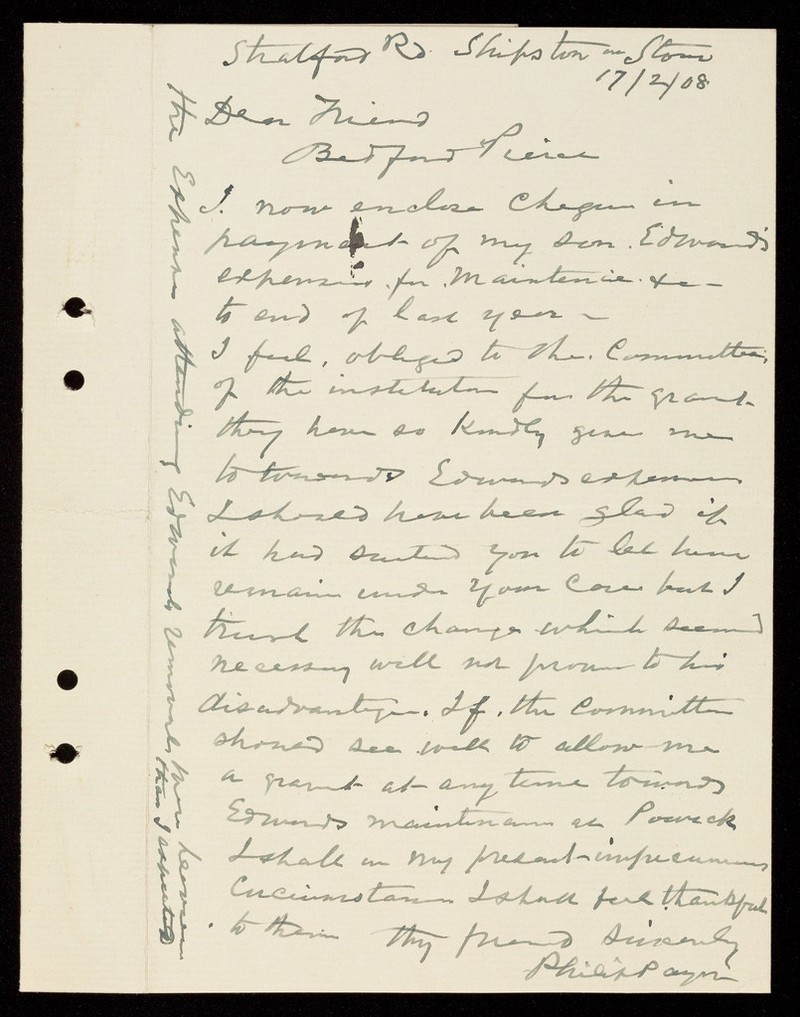 Stratford Rd Shipston on Stour
17/2/08
Dear Friend
Bedford Pierce
I now enclose Cheque in
payment of my son Edward's
expenses for Maintenie &c -
to end of last year -
I feel obliged to the Committee
of the institution for the grant
they have so kindly given me
to towards Edwards expenses
I should have been glad if
it had suited you to let him
remain under your Care but I
trust the change which seemed
necessary will not prove to his
disadvantage. If the Committee
should see well to allow me
a grant at any time towards
Edwards maintenance at Powick
I shall in my present impecunious
Circumstances I shall feel thankful
to them thy friend sincerely
Philip Payne
the Expense attending Edwards removal, were heavier
than I expected